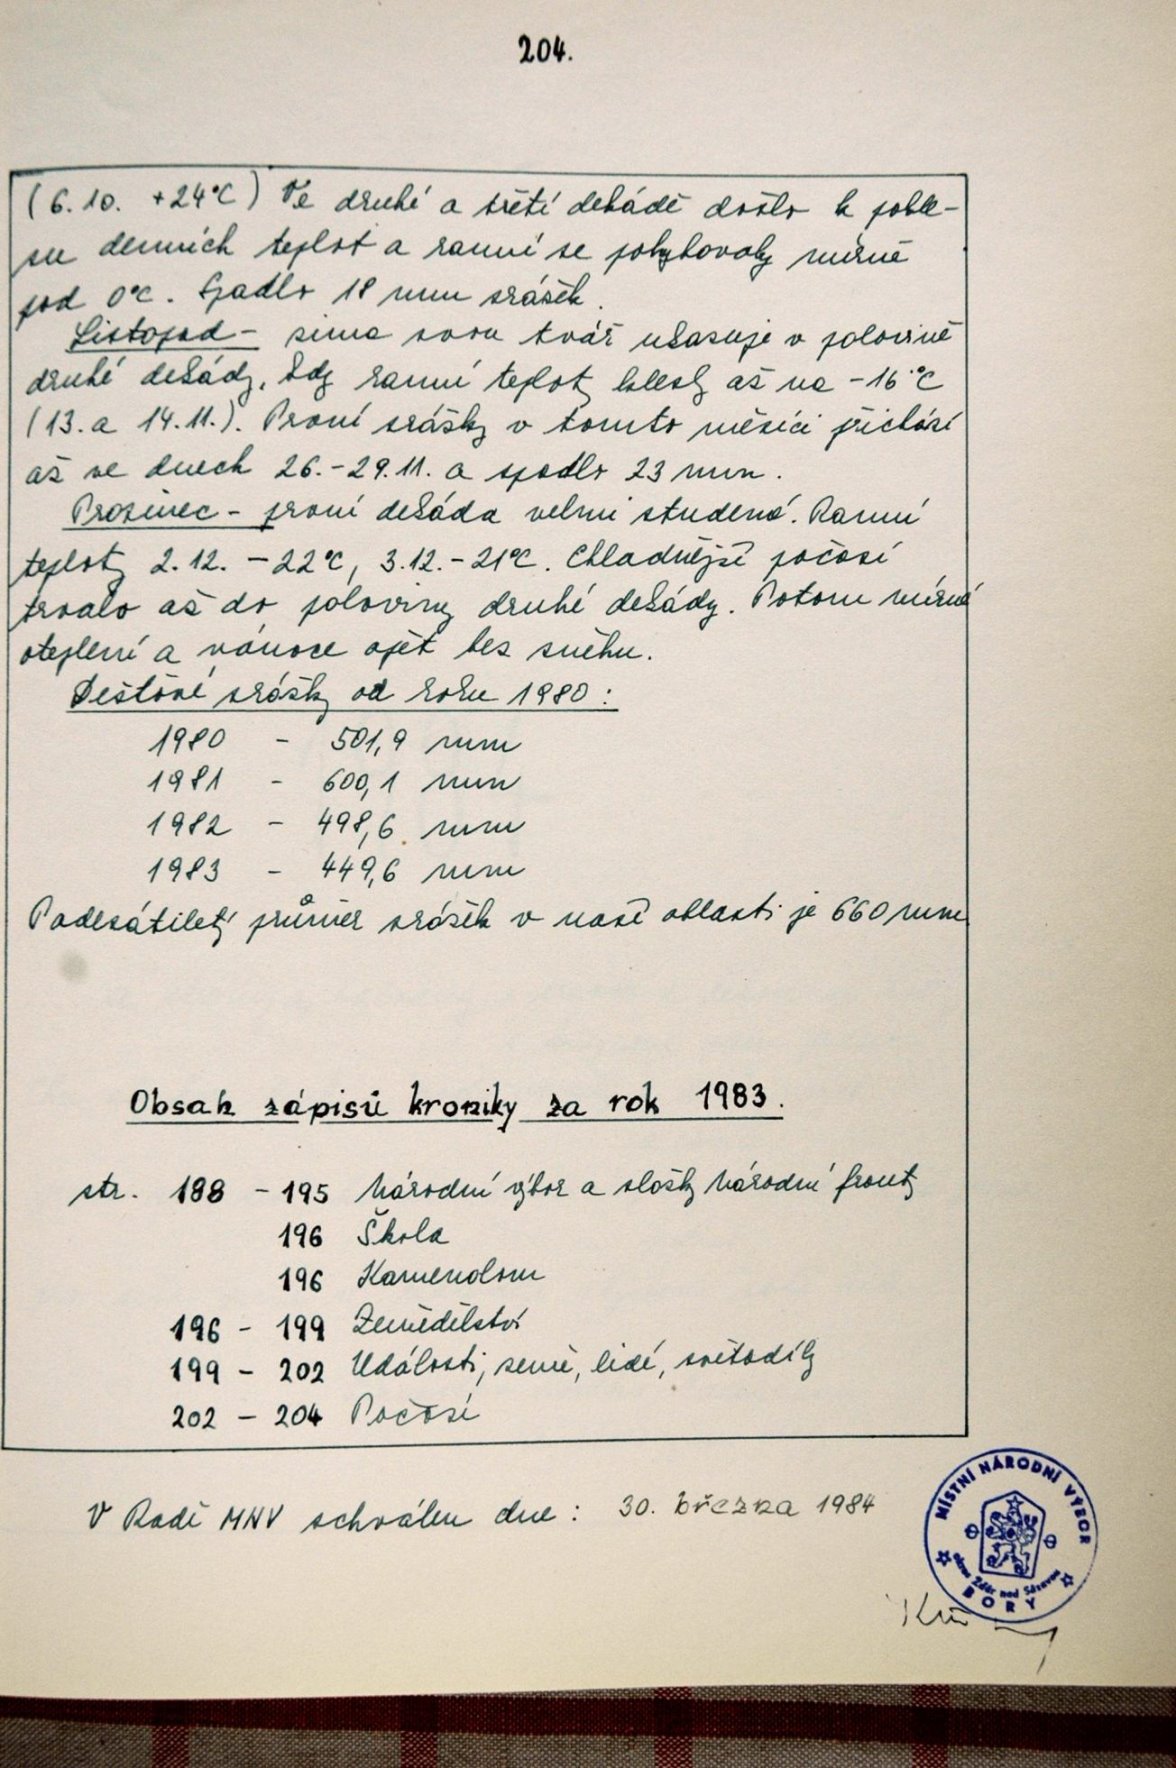 204.
(6.10. +24°C) Ve druhé a třetí dekádě došlo k pokle-
su denních teplot a ranní se pohybovaly mírně
pod 0°C. Spadlo 18 mm srážek.
Listopad - zima svou tvář ukazuje v polovině
druhé dekády, kdy ranní teploty klesly až na -16°C
(13. a 14.11.). První srážky v tomto měsíci přichází
až ve dnech 26.-29.11. a spadlo 23 mm.
Prosinec - první dekáda velmi studená. Ranní
teploty 2.12. -22°C, 3.12. -21°C. Chladnější počasí
trvalo až do poloviny druhé dekády. Potom mírné
oteplení a vánoce opět bez sněhu.
Dešťové srážky od roku 1980:
1980 - 501,9 mm
1981 - 600,1 mm
1982 - 498,6 mm
1983 - 449,6 mm
Padesátiletý průměr srážek v naší oblasti je 660 mm
Obsah zápisů kroniky za rok 1983.
str. 188 - 195 Národní výbor a složky Národní fronty
196 Škola
196 Kamenolom
196 - 199 Zemědělství
199 - 202 Události, země, lidé, světadíly
202 - 204 Počasí
V Radě MNV schválen dne: 30. března 1984
MÍSTNÍ NÁRODNÍ VÝBOR
okres Žďár nad Sázavou
BORY